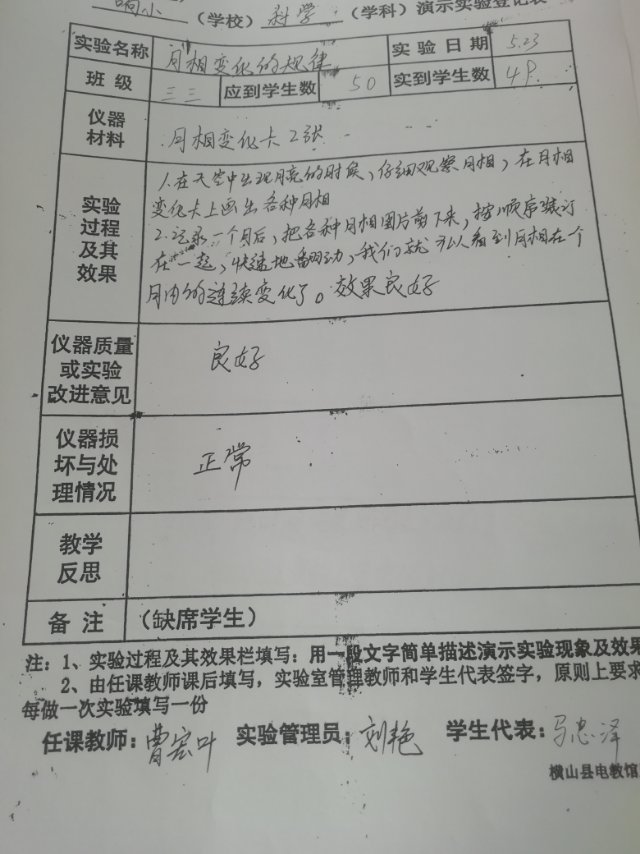 响小（学校）科学（学科）演示实验登记表
实验名称 月相变化的规律 实验日期 5.23
班级 三三 应到学生数 50 实到学生数 49
仪器材料 月相变化卡2张
实验过程及其效果
1.在天空中出现月亮的时候，仔细观察月相，在月相
变化卡上画出各种月相
2.记录一个月后，把各种月相图片剪下来，按顺序装订
在一起，快速地翻动，我们就可以看到月相在一个
月内的连续变化了。效果良好
仪器质量或实验改进意见 良好
仪器损坏与处理情况 正常
教学反思
备注 （缺席学生）
注：1、实验过程及其效果栏填写：用一段文字简单描述演示实验现象及效果
2、由任课教师课后填写，实验室管理教师和学生代表签字，原则上要求
每做一次实验填写一份
任课教师：曹宏叶 实验管理员：刘艳 学生代表：马忠泽
横山县电教馆